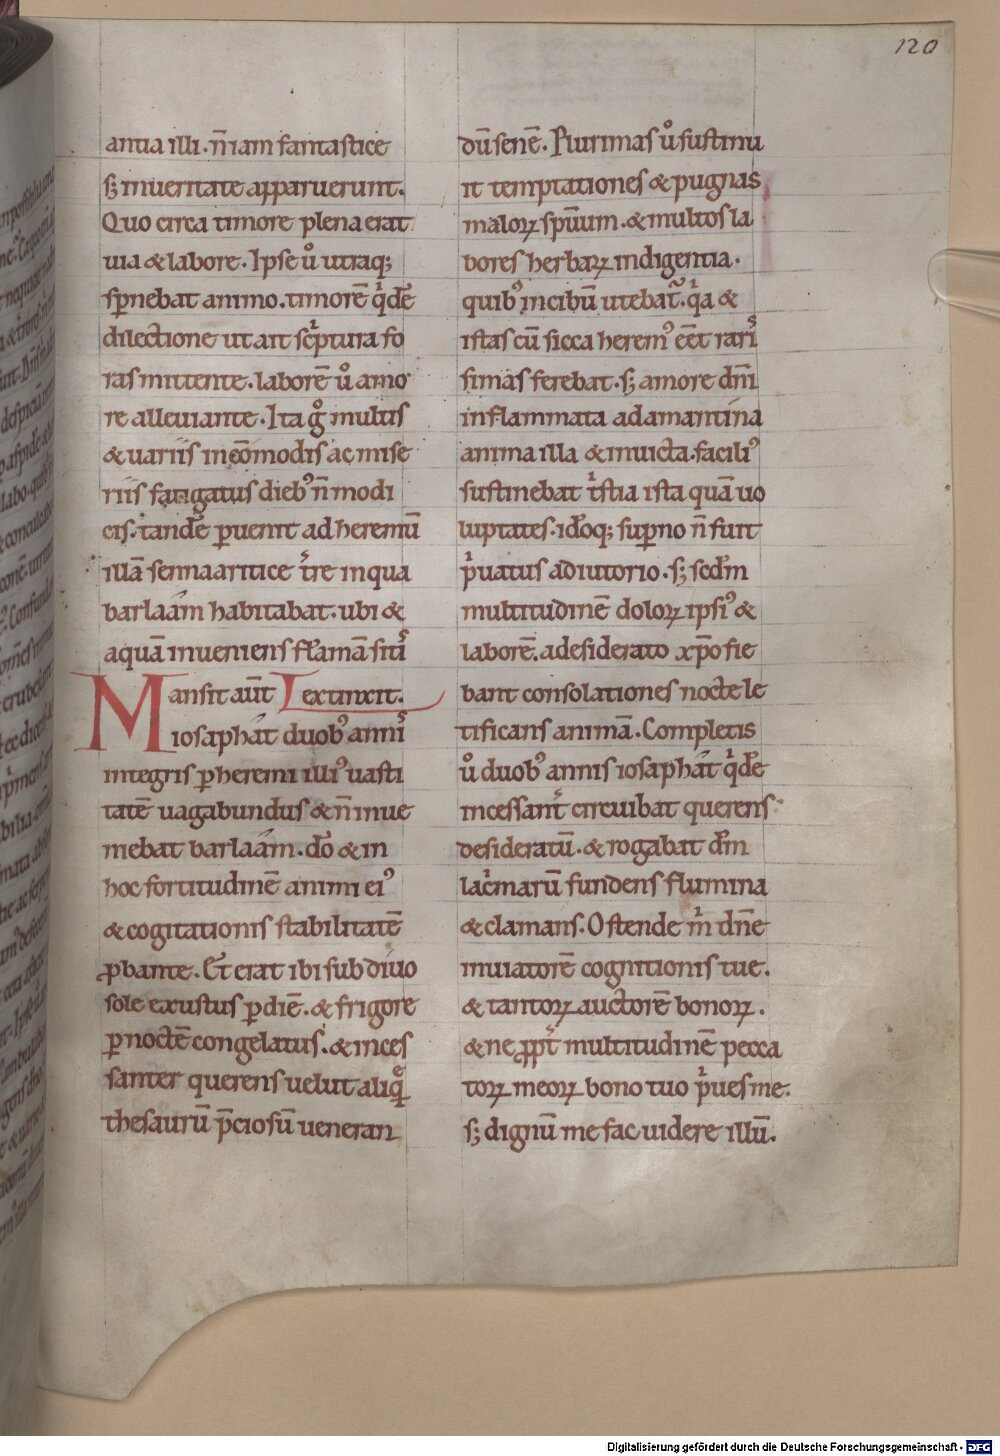 120
antia illi. n̄ iam fantastice
sꝫ in ueritate apparuerunt.
Quo circa timore plena erat
uia & labore. Ipse ů utraqꝫ
sp̱nebat animo. timorē qͥdē
dilectione ut ait scͥptura fo
ras mittente. laborē ů amo
re alleuiante. Ita g̊ multis
& uariis incōmodis ac mise
riis fatigatus dieb᾿ n̄ modi
cis. tandē ꝑuenit ad heremū
illā sennaaritice tr̄e in qua
barlaám habitabat. ubi &
aquā inueniens flāmā sitis
extinxit.
Mansit aūt
iosaphát duob᾿ annis
integris ꝑ heremi illi᾿ uasti
tatē uagabundus & n̄ inue
niebat barlaám. dō & in
hoc fortitudinē animi ei᾿
& cogitationis stabilitatē
ꝓbante. Et erat ibi sub diuo
sole exustus ꝑ diē. & frigore
ꝑ noctē congelatus. & inces
santer querens uelut aliqͤ
thesaurū p̄ciosū ueneran
dū senē. Plurimas ů sustinu
it temptationes & pugnas
maloꝝ spūum. & multos la
bores herbaꝝ indigentia.
quib᾿ in cibū utebat᷑. qͥa &
istas cū sicca herem᾿ eēt raris
simas ferebat. sꝫ amore dn̄i
inflammata adamantina
anima illa & inuicta. facili᾿
sustinebat tͥstia ista quā uo
luptates. idōqꝫ suꝑno n̄ fuit
pͥuatus adiutorio. sꝫ scdm̄
multitudinē doloꝝ ipsi᾿ &
laborē. a desiderato xp̄o fie
bant consolationes nocte le
tificans animā. Completis
ů duob᾿ annis iosaphát qͥdē
incessant᷑ circuibat querens
desideratū. & rogabat dm̄
lacͥmarū fundens flumina
& clamans. Ostende mͥ dn̄e
inuiatorē cognitionis tue.
& tantoꝝ auctorē bonoꝝ.
& ne ꝓpt᷑ multitudinē pecca
toꝝ meoꝝ bono tuo pͥues me.
sꝫ dignū me fac uidere illū.
Digitalisierung gefördert durch die Deutsche Forschungsgemeinschaft - DFG